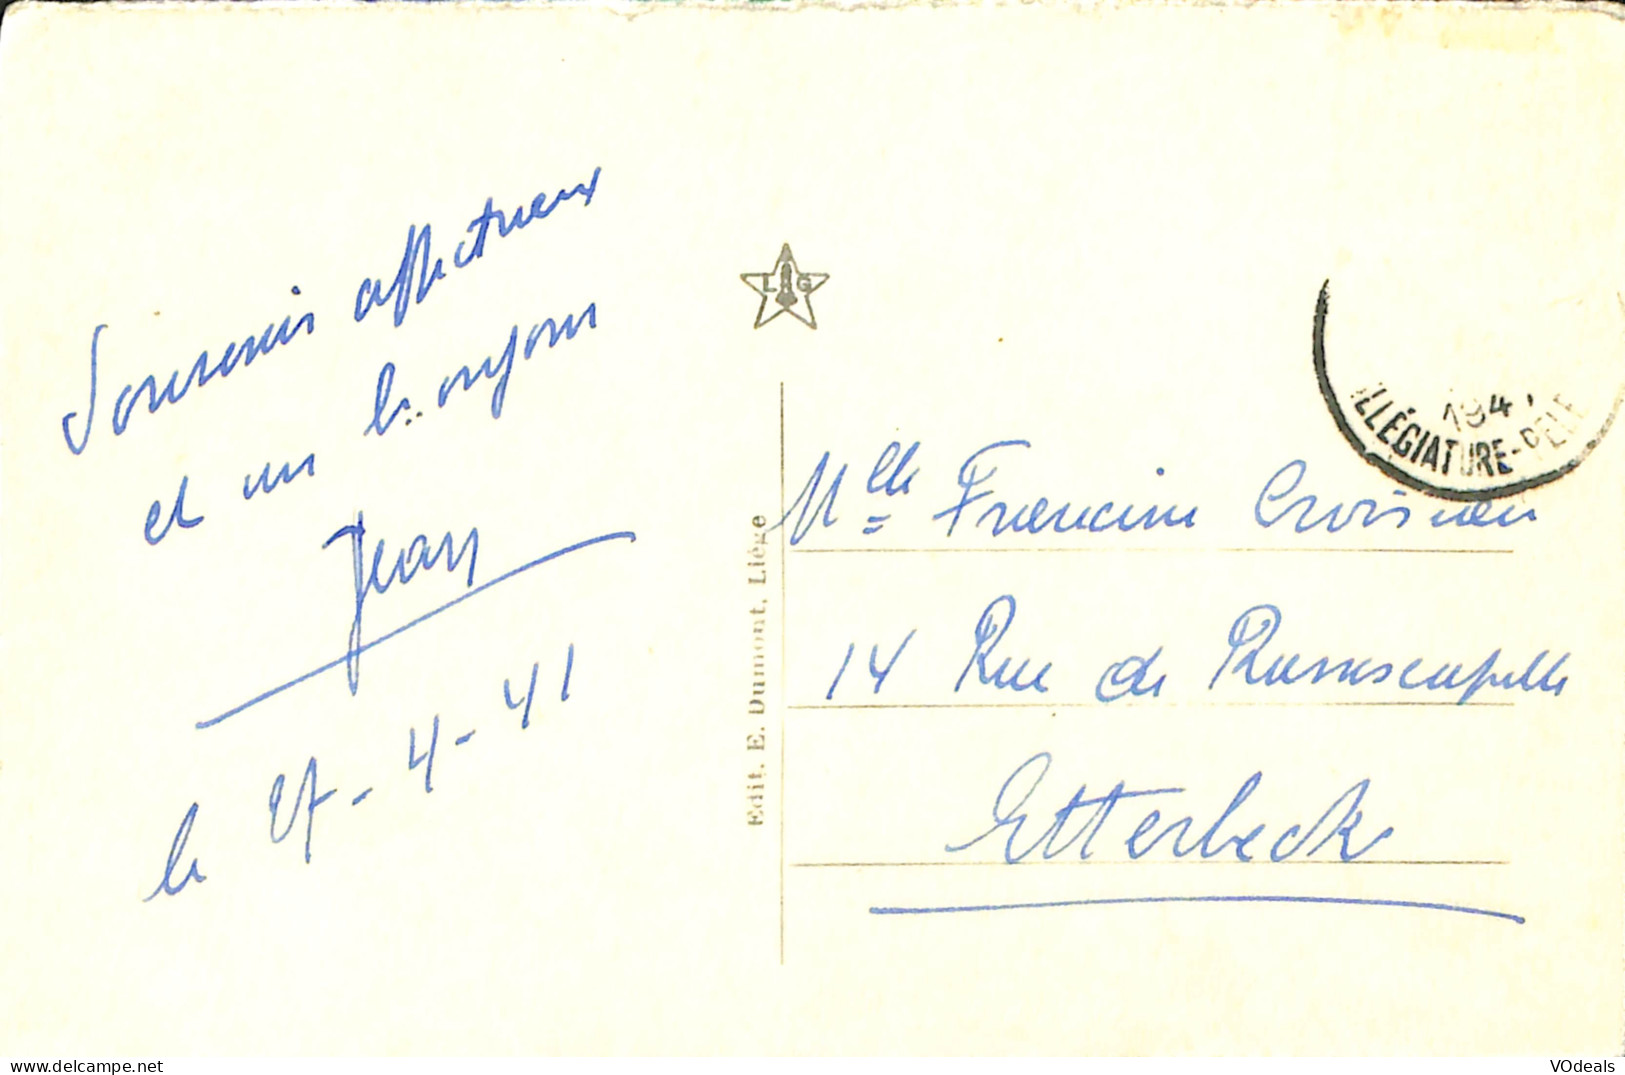 Souvenir affectueux
et un bonjour
Jean
le 27-4-41
L G
Edit. E. Dumont, Liège
194
ILLÉGIATURE-PÈLE
Mlle Francine
14 Rue de
Etterbeck
www.delcampe.net
VOdeals